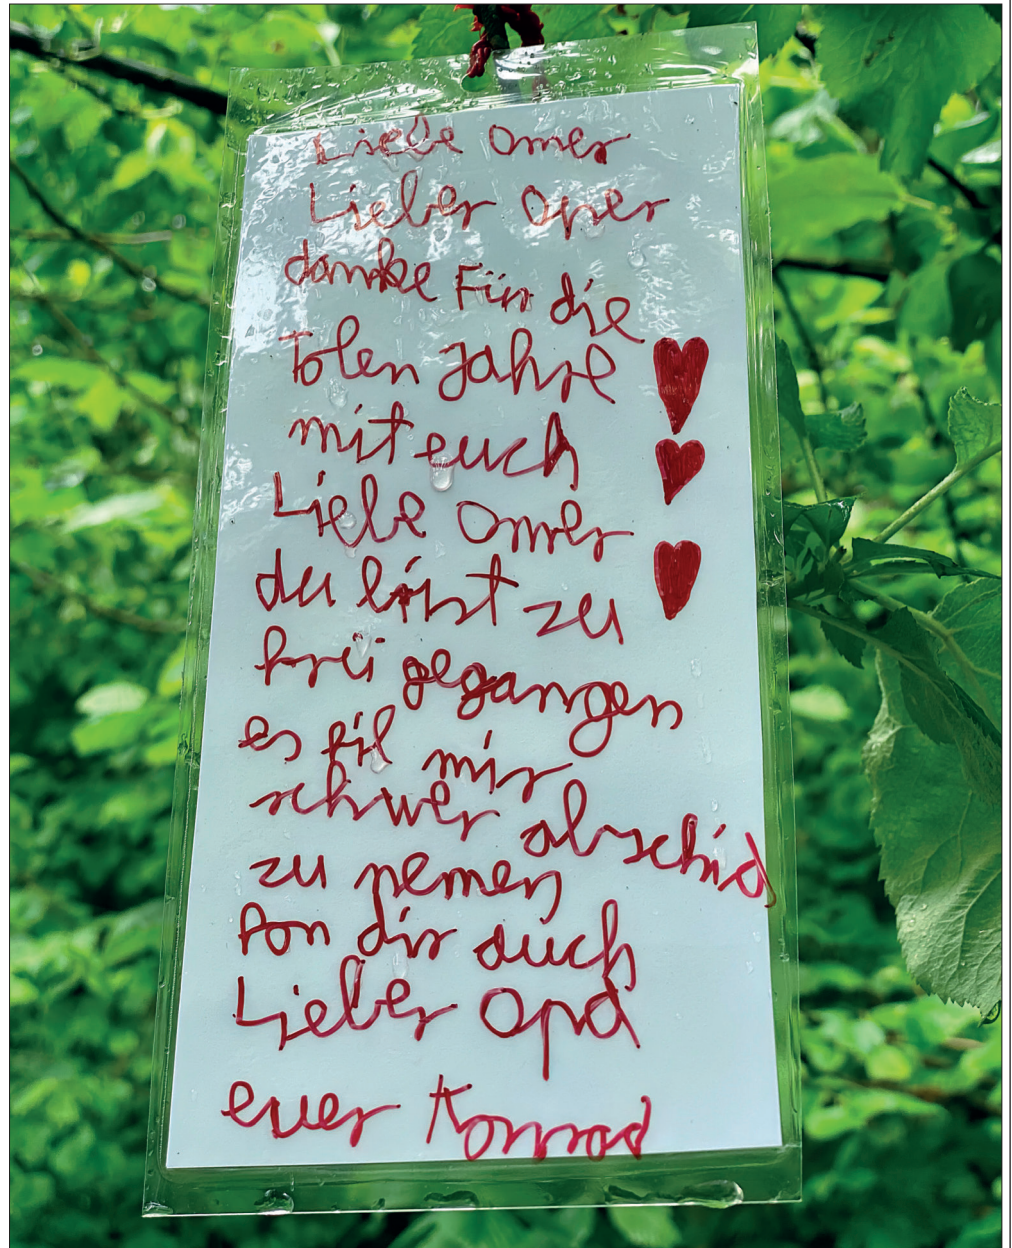 Liebe Omer
Lieber Oper
danke Für die
Tolen Jahre
mit euch
Liebe Omer
du bist zu
früi gegangen
es fil mir
schwer abschid
zu nemen
Fon dir auch
Lieber Opa
euer Konrad